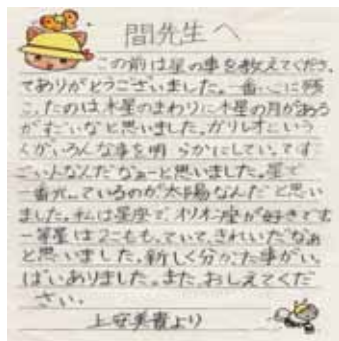 間先生へ
この前は星の事を教えてくださ、
てありがとうございました。一番心に残
こ、たのは木星のまわりに木星の月がある
がすごいなと思いました。ガリレオという
人がいろんな事を明らかにしていてす
ごい人なんだなぁーと思いました。星で
一番光っているのが太陽なんだと思い
ました。私は星座で、オリオン座が好きです
一等星は2こももっていて、きれいだなぁ
と思いました。新しく分かた事がい、
ぱいありました。また、おしえてくだ
さい。
上安美貴より